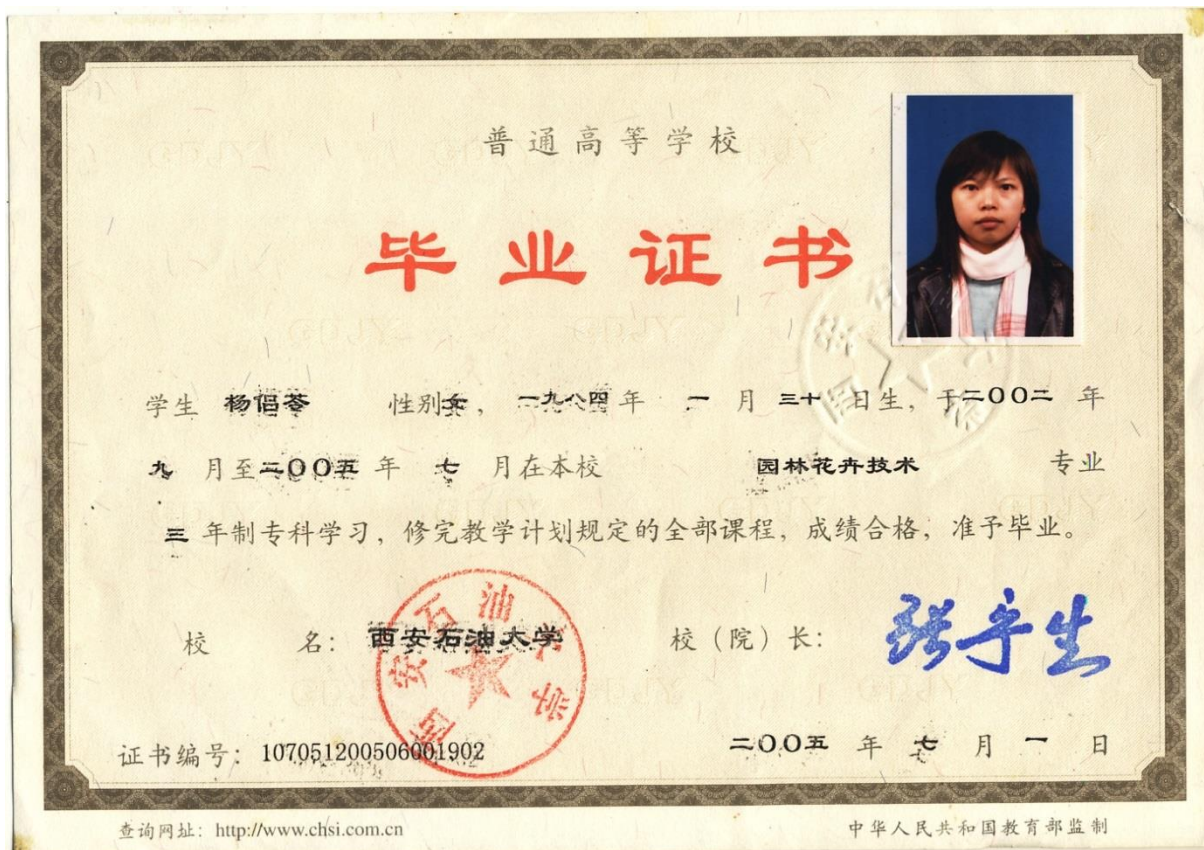 普通高等学校
毕业证书
学生 杨倡苓 性别女，一九八四年 一 月 三十 日生，于二〇〇二 年
九 月至二〇〇五 年 七 月在本校 园林花卉技术 专业
三 年制专科学习，修完教学计划规定的全部课程，成绩合格，准予毕业。
校 名：西安石油大学 校（院）长：
西安石油大学
证书编号：107051200506001902 二〇〇五 年 七 月 一 日
查询网址：http://www.chsi.com.cn 中华人民共和国教育部监制